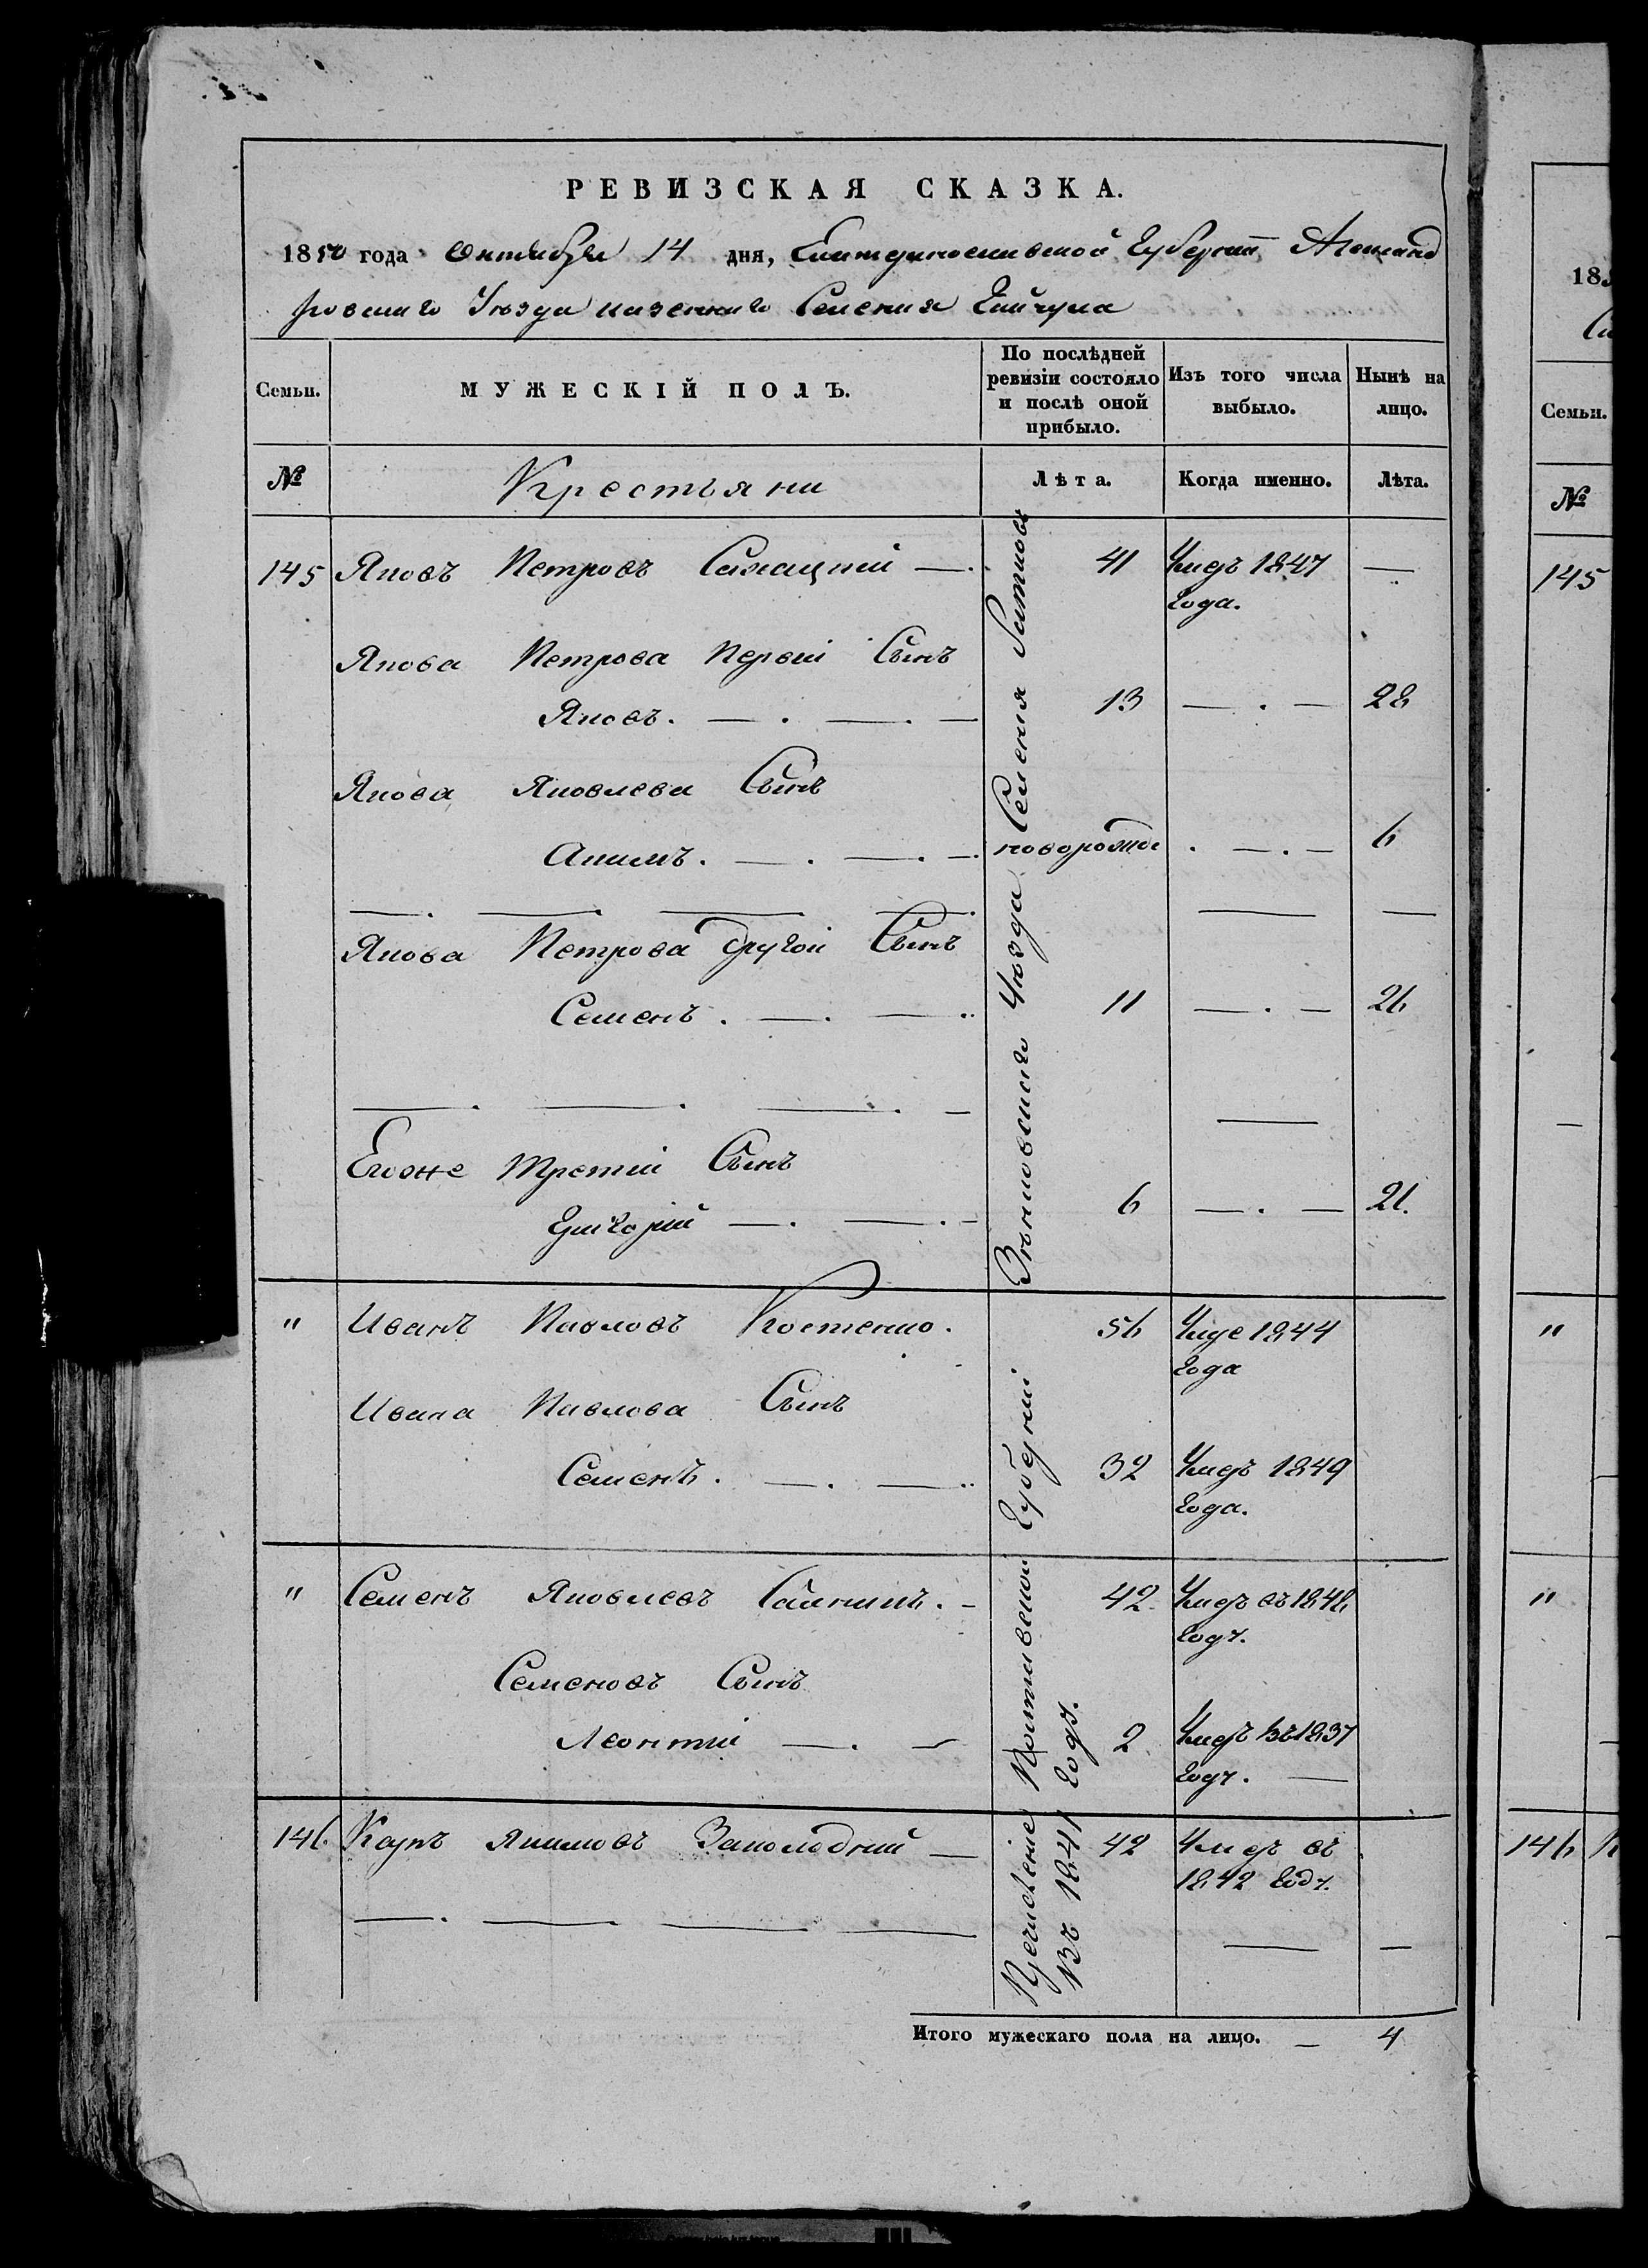 РЕВИЗСКАЯ СКАЗКА.
1850 года Октября 14 дня, Екатеринославской Губерніи Александ
ровскаго Уѣзда казеннаго Селенія Гайчула
Семьи.
МУЖЕСКІЙ ПОЛЪ.
По послѣдней ревизіи состояло и послѣ оной прибыло.
Изъ того числа выбыло.
Нынѣ на лицо.
№
Крестьяни
Лѣта.
Когда именно.
Лѣта.
145 Яковъ Петровъ — 41 Умеръ 1847 —
года.
Якова Петрова Первій Сынъ
Яковъ. — . — . — 13 — . — 28
Якова Яковлева Сынъ
Акимъ. — . — . — новорожде . — . — 6
Якова Петрова другой Сынъ
Семенъ . — . — .. 11 — . — 26
Егоже Третій Сынъ
Григорій — . — . - 6 — . — 21.
" Иванъ Павловъ Костенко. 56 Умре 1844
года
Ивана Павлова Сынъ
Семенъ . — . — .. 32 Умеръ 1849
года.
" Семенъ Яковлевъ . - 42 Умеръ въ 1848
году.
Семеновъ Сынъ
Леонтій — . — 2 Умеръ въ 1837
году. —
146. Карпъ Якимовъ Заколодній — 42 Умеръ въ
1842 году.
Перчисленіе Полтавской Губерніи Зѣньковскаго Уѣзда Селенія
Въ 1841 Году.
Итого мужескаго пола на лицо. — 4
18
Семьи.
№
145
"
"
146